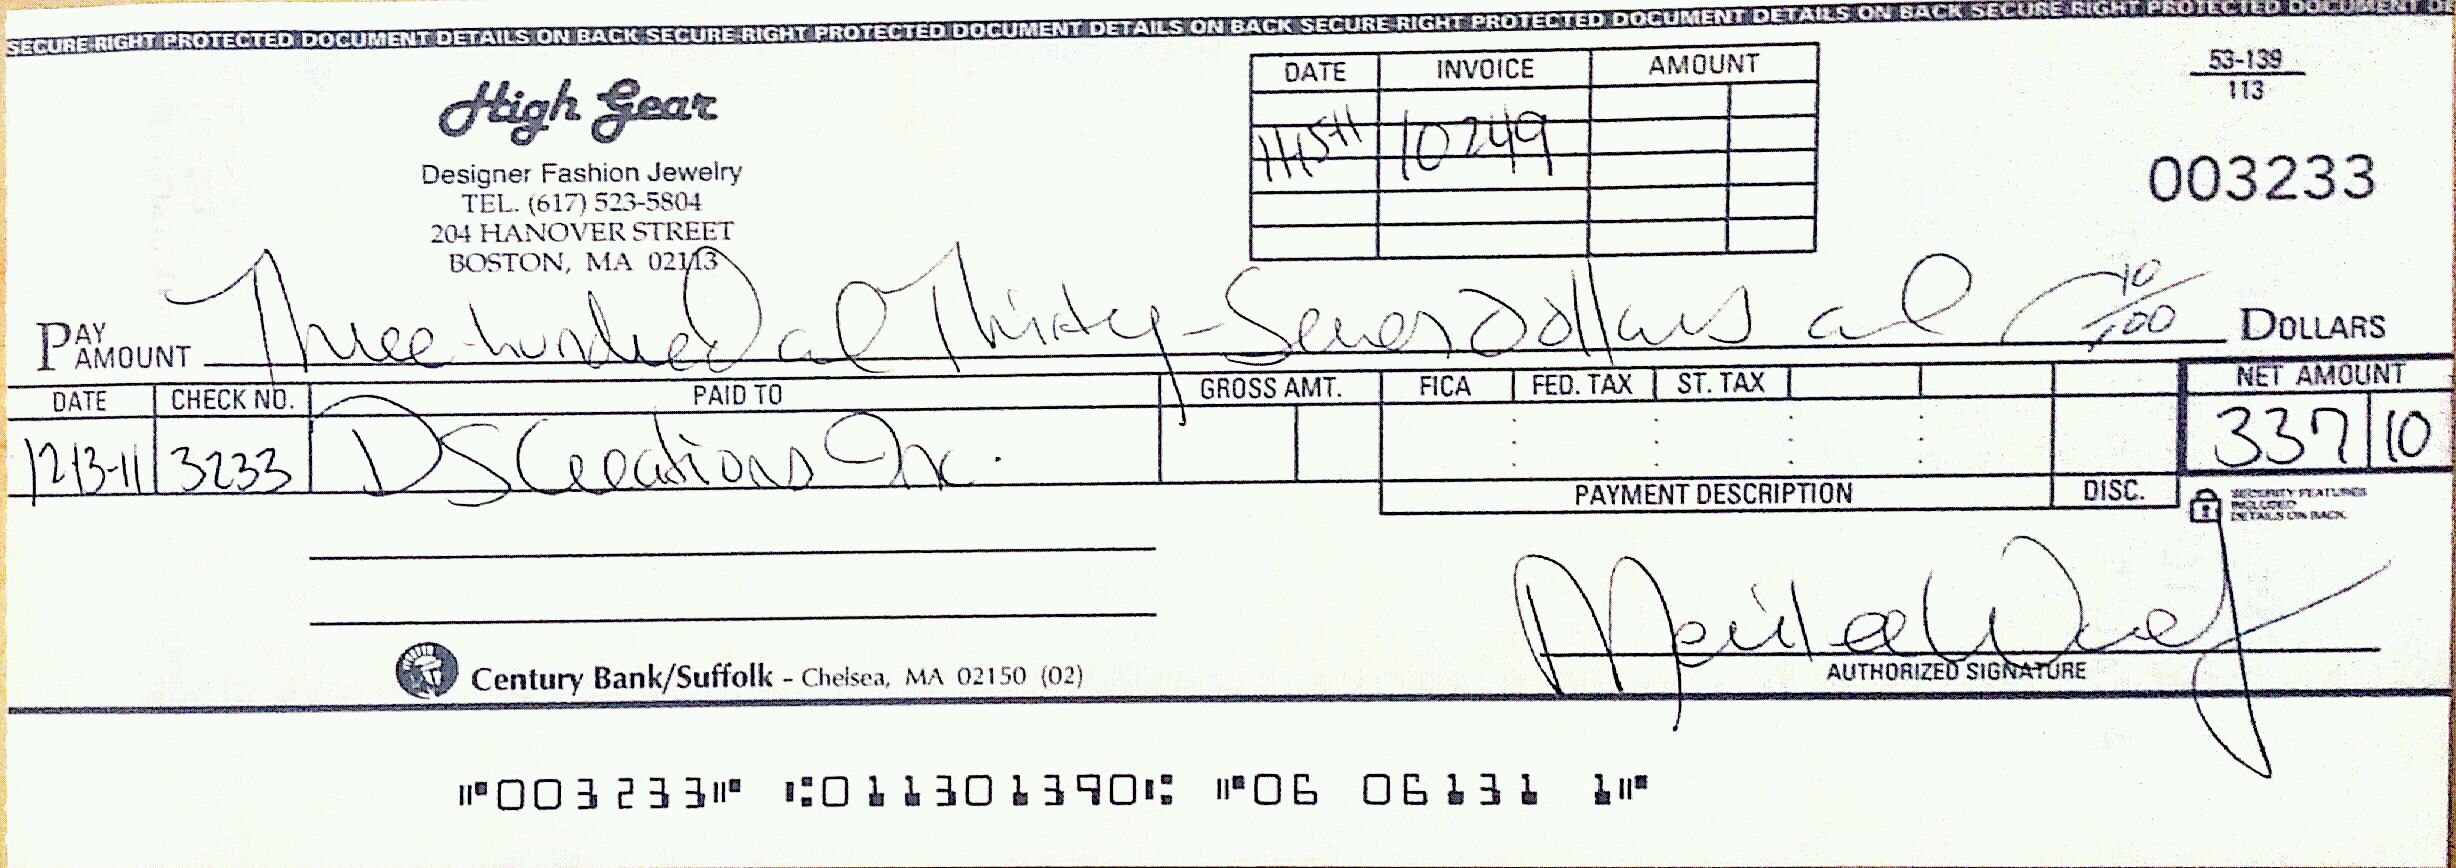 SECURE-RIGHT PROTECTED DOCUMENT DETAILS ON BACK SECURE-RIGHT PROTECTED DOCUMENT DETAILS ON BACK SECURE-RIGHT PROTECTED DOCUMENT DETAILS ON BACK SECURE-RIGHT PROTECTED DOCUMENT DE
High Gear
Designer Fashion Jewelry
TEL. (617) 523-5804
204 HANOVER STREET
BOSTON, MA 02113
DATE INVOICE AMOUNT
11-15-11 10249
53-139
113
003233
PAY AMOUNT Three hundred and Thirty-Seven Dollars and 10/100 DOLLARS
DATE CHECK NO. PAID TO GROSS AMT. FICA FED. TAX ST. TAX NET AMOUNT
12-13-11 3233 DS Creations Inc. 337 10
PAYMENT DESCRIPTION DISC.
SECURITY FEATURES
INCLUDED
DETAILS ON BACK
Century Bank/Suffolk - Chelsea, MA 02150 (02)
AUTHORIZED SIGNATURE
⑈003233⑈ ⑆011301390⑆ ⑈06 06131 1⑈